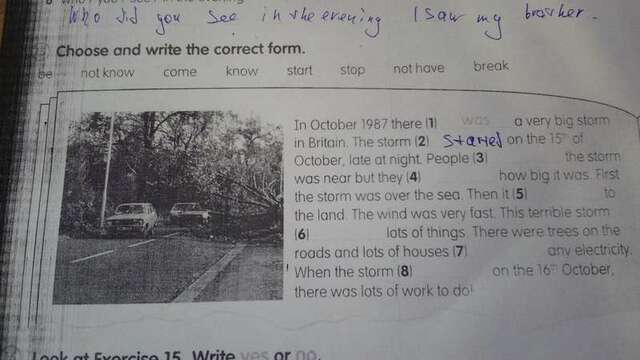 Who did you see in the evening I saw my brother.
Choose and write the correct form.
be not know come know start stop not have break
In October 1987 there (1) was a very big storm
in Britain. The storm (2) started on the 15th of
October, late at night. People (3) the storm
was near but they (4) how big it was. First
the storm was over the sea. Then it (5) to
the land. The wind was very fast. This terrible storm
(6) lots of things. There were trees on the
roads and lots of houses (7) any electricity.
When the storm (8) on the 16th October,
there was lots of work to do!
Look at Exercise 15. Write yes or no.